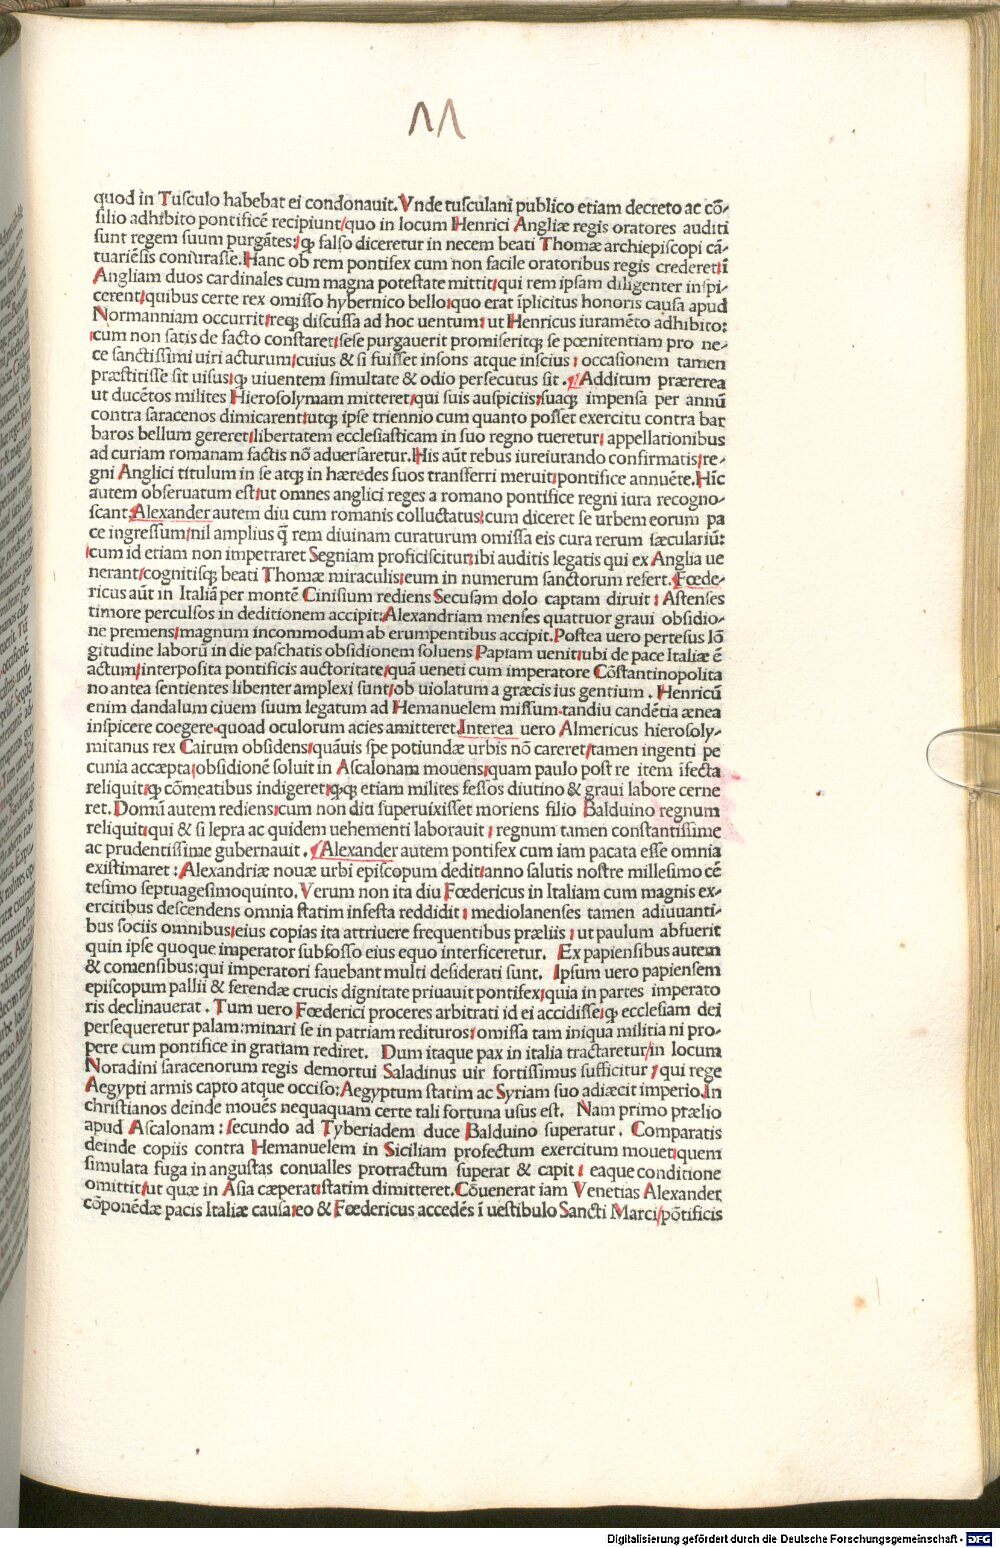 quod in Tusculo habebat ei condonauit. Vnde tusculani publico etiam decreto ac cō-
silio adhibito pontificē recipiunt/quo in locum Henrici Angliæ regis oratores auditi
sunt regem suum purgātes:ꝙ falso diceretur in necem beati Thomæ archiepiscopi cā-
tuariēsis coniurasse. Hanc ob rem pontifex cum non facile oratoribus regis crederet:ī
Angliam duos cardinales cum magna potestate mittit:qui rem ipsam diligenter inspi-
cerent:quibus certe rex omisso hybernico bello:quo erat īplicitus honoris causa apud
Normanniam occurrit:reqꝫ discussa ad hoc uentum:ut Henricus iuramēto adhibito:
cum non satis de facto constaret:sese purgauerit promiseritqꝫ se pœnitentiam pro ne-
ce sanctissimi uiri acturum:cuius & si fuisset insons atque inscius: occasionem tamen
præstitisse sit uisus:ꝙ uiuentem simultate & odio persecutus sit. Additum prærerea
ut ducētos milites Hierosolymam mitteret:qui suis auspiciis:suaqꝫ impensa per annū
contra saracenos dimicarent:utqꝫ ipse triennio cum quanto posset exercitu contra bar
baros bellum gereret:libertatem ecclesiasticam in suo regno tueretur: appellationibus
ad curiam romanam factis nō aduersaretur. His aūt rebus iureiurando confirmatis:re-
gni Anglici titulum in se atqꝫ in hæredes suos transferri meruit:pontifice annuēte. Hic
autem obseruatum est:ut omnes anglici reges a romano pontifice regni iura recogno-
scant. Alexander autem diu cum romanis colluctatus:cum diceret se urbem eorum pa
ce ingressum:nil amplius q̄ rem diuinam curaturum omissa eis cura rerum sæculariū:
cum id etiam non impetraret Segniam proficiscitur:ibi auditis legatis qui ex Anglia ue
nerant:cognitisqꝫ beati Thomæ miraculis:eum in numerum sanctorum refert. Fœde-
ricus aūt in Italiā per montē Cinisium rediens Secusam dolo captam diruit: Astenses
timore perculsos in deditionem accipit: Alexandriam menses quattuor graui obsidio-
ne premens:magnum incommodum ab erumpentibus accipit. Postea uero pertesus lō
gitudine laborū in die paschatis obsidionem soluens Papiam uenit:ubi de pace Italiæ ē
actum:interposita pontificis auctoritate:quā ueneti cum imperatore Cōstantinopolita
no antea sentientes libenter amplexi sunt:ob uiolatum a græcis ius gentium. Henricū
enim dandalum ciuem suum legatum ad Hemanuelem missum·tandiu candētia ænea
inspicere coegere·quoad oculorum acies amitteret. Interea uero Almericus hierosoly-
mitanus rex Cairum obsidens:quāuis spe potiundæ urbis nō careret:tamen ingenti pe
cunia accæpta:obsidionē soluit in Ascalonam mouens:quam paulo post re item īfecta
reliquit:ꝙ cōmeatibus indigeret:ꝙqꝫ etiam milites fessos diutino & graui labore cerne
ret. Domū autem rediens:cum non diu superuixisset moriens filio Balduino regnum
reliquit:qui & si lepra ac quidem uehementi laborauit: regnum tamen constantissime
ac prudentissime gubernauit. Alexander autem pontifex cum iam pacata esse omnia
existimaret: Alexandriæ nouæ urbi episcopum dedit:anno salutis nostre millesimo cē
tesimo septuagesimoquinto. Verum non ita diu Fœdericus in Italiam cum magnis ex-
ercitibus descendens omnia statim infesta reddidit: mediolanenses tamen adiuuanti-
bus sociis omnibus:eius copias ita attriuere frequentibus præliis: ut paulum abfuerit
quin ipse quoque imperator subfosso eius equo interficeretur. Ex papiensibus autem
& comensibus:qui imperatori fauebant multi desiderati sunt. Ipsum uero papiensem
episcopum pallii & ferendæ crucis dignitate priuauit pontifex:quia in partes imperato
ris declinauerat. Tum uero Fœderici proceres arbitrati id ei accidisse:ꝙ ecclesiam dei
persequeretur palam:minari se in patriam redituros:omissa tam iniqua militia ni pro-
pere cum pontifice in gratiam rediret. Dum itaque pax in italia tractaretur/in locum
Noradini saracenorum regis demortui Saladinus uir fortissimus sufficitur: qui rege
Aegypti armis capto atque occiso: Aegyptum statim ac Syriam suo adiæcit imperio. In
christianos deinde mouēs nequaquam certe tali fortuna usus est. Nam primo prælio
apud Ascalonam: secundo ad Tyberiadem duce Balduino superatur. Comparatis
deinde copiis contra Hemanuelem in Siciliam profectum exercitum mouet:quem
simulata fuga in angustas conualles protractum superat & capit: eaque conditione
omittit:ut quæ in Asia cæperat:statim dimitteret. Cōuenerat iam Venetias Alexander
cōponēdæ pacis Italiæ causa:eo & Fœdericus accedēs ī uestibulo Sancti Marci/pōtificis
Digitalisierung gefördert durch die Deutsche Forschungsgemeinschaft - DFG